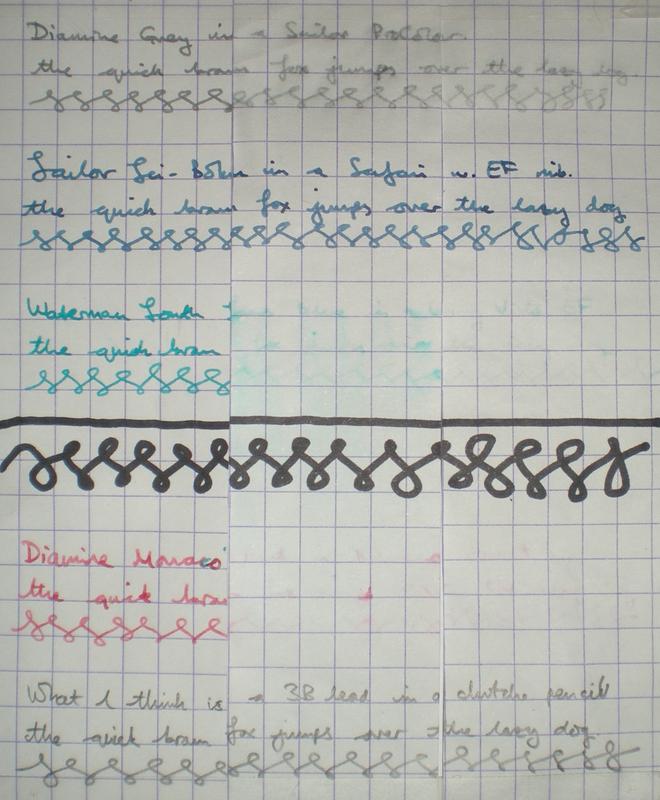 Diamine Grey in a Sailor ProColor.
the quick brown fox jumps over the lazy dog.
Sailor Sei-Boku in a Safari w. EF nib.
the quick brown fox jumps over the lazy dog
Waterman South
the quick brown
Diamine Monaco
the quick brown
What I think is a 3B lead in a clutche pencil
the quick brown fox jumps over the lazy dog.